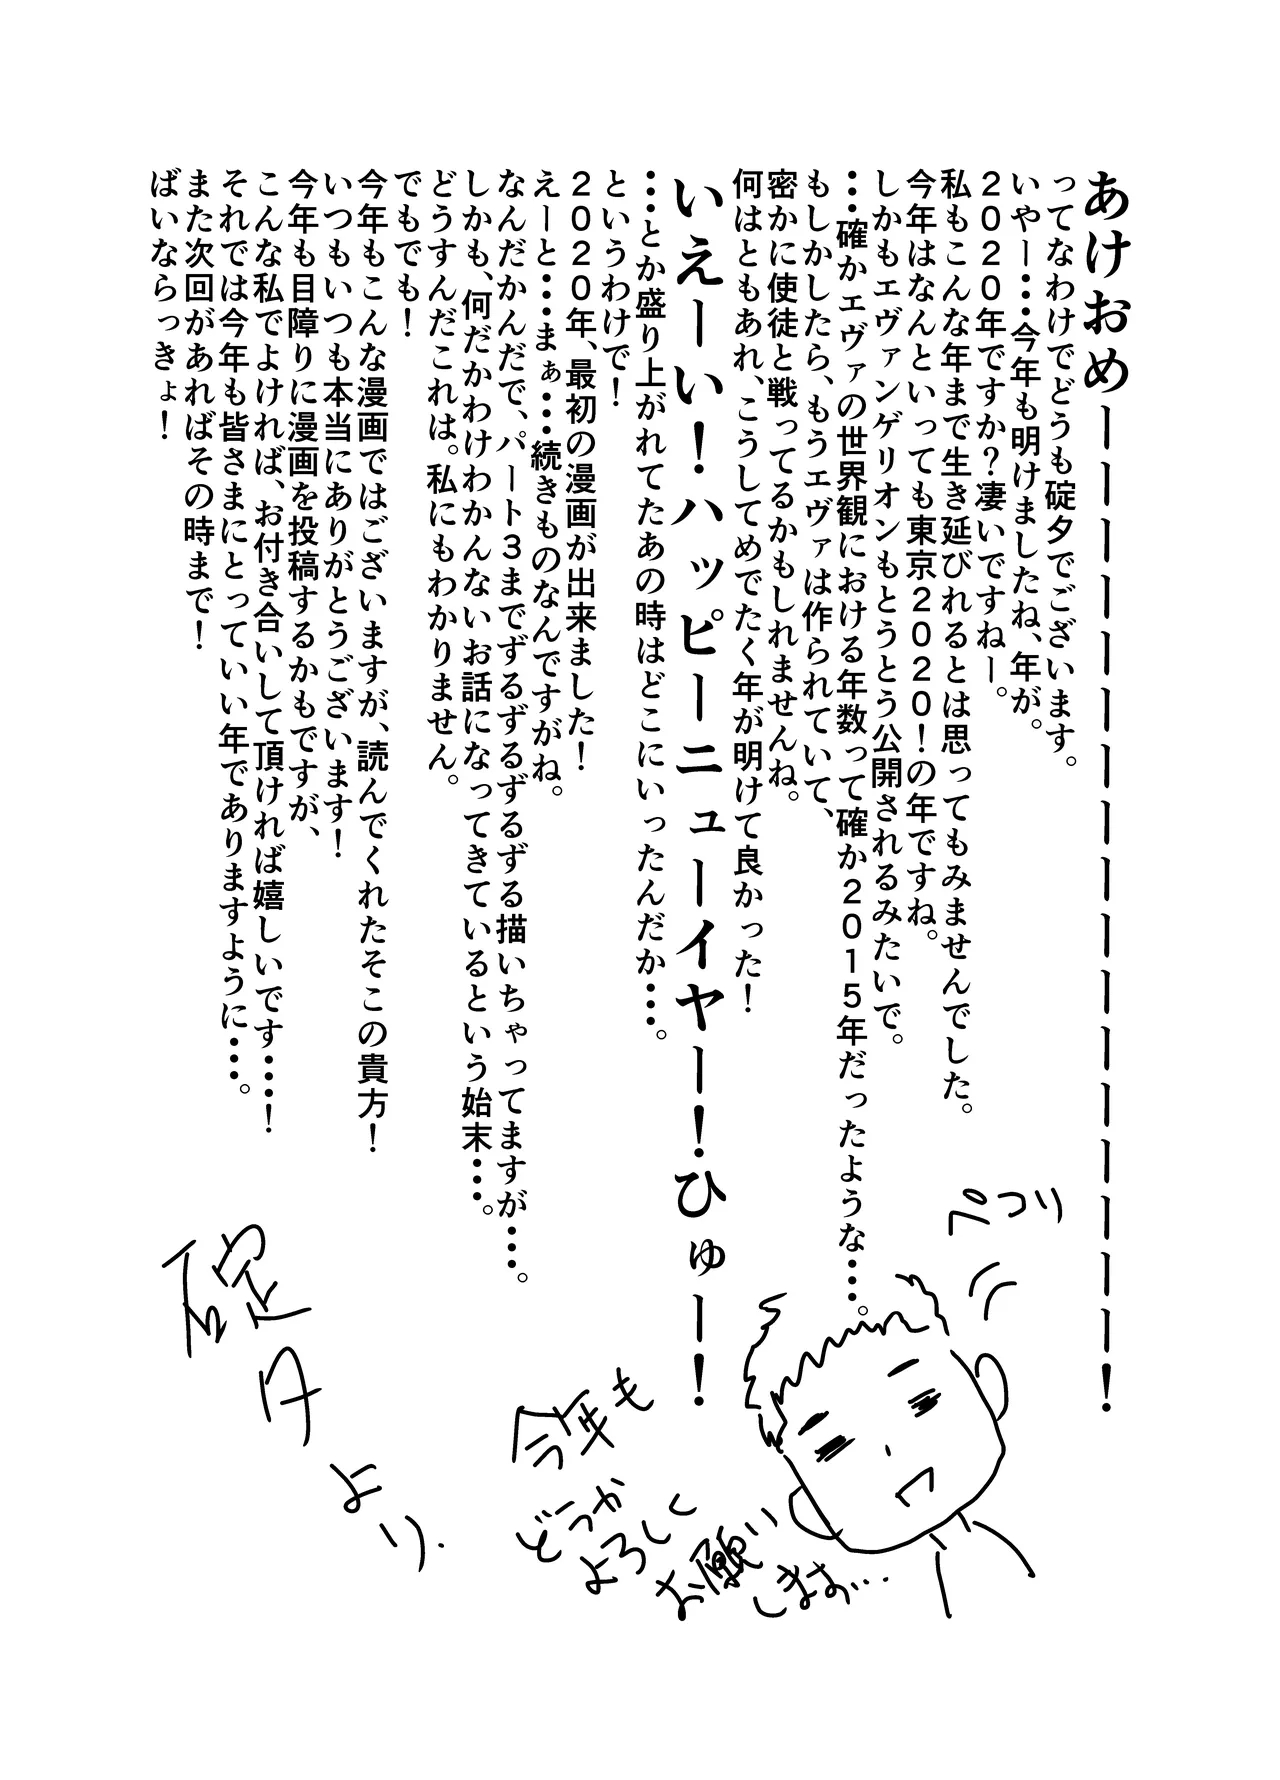 あけおめーーーーーーーーーーーーーーーーー！
ってなわけでどうも碇夕でございます。
いやー…今年も明けましたね、年が。
２０２０年ですか？凄いですねー。
私もこんな年まで生き延びれるとは思ってもみませんでした。
今年はなんといっても東京２０２０！の年ですね。
しかもエヴァンゲリオンもとうとう公開されるみたいで。
…確かエヴァの世界観における年数って確か２０１５年だったような…。
もしかしたら、もうエヴァは作られていて、
密かに使徒と戦ってるかもしれませんね。
何はともあれ、こうしてめでたく年が明けて良かった！
いえーい！ハッピーニューイヤー！ひゅー！
…とか盛り上がれてたあの時はどこにいったんだか…。
というわけで！
２０２０年、最初の漫画が出来ました！
えーと…まぁ…続きものなんですがね。
なんだかんだで、パート３までずるずるずるずる描いちゃってますが…。
しかも、何だかわけわかんないお話になってきているという始末…。
どうすんだこれは。私にもわかりません。
でもでも！
今年もこんな漫画ではございますが、読んでくれたそこの貴方！
いつもいつも本当にありがとうございます！
今年も目障りに漫画を投稿するかもですが、
こんな私でよければ、お付き合いして頂ければ嬉しいです…！
それでは今年も皆さまにとっていい年でありますように…。
また次回があればその時まで！
ばいならっきょ！
ぺつり
今年も
どうか
よろしく
お願い
します…
碇
夕
より.